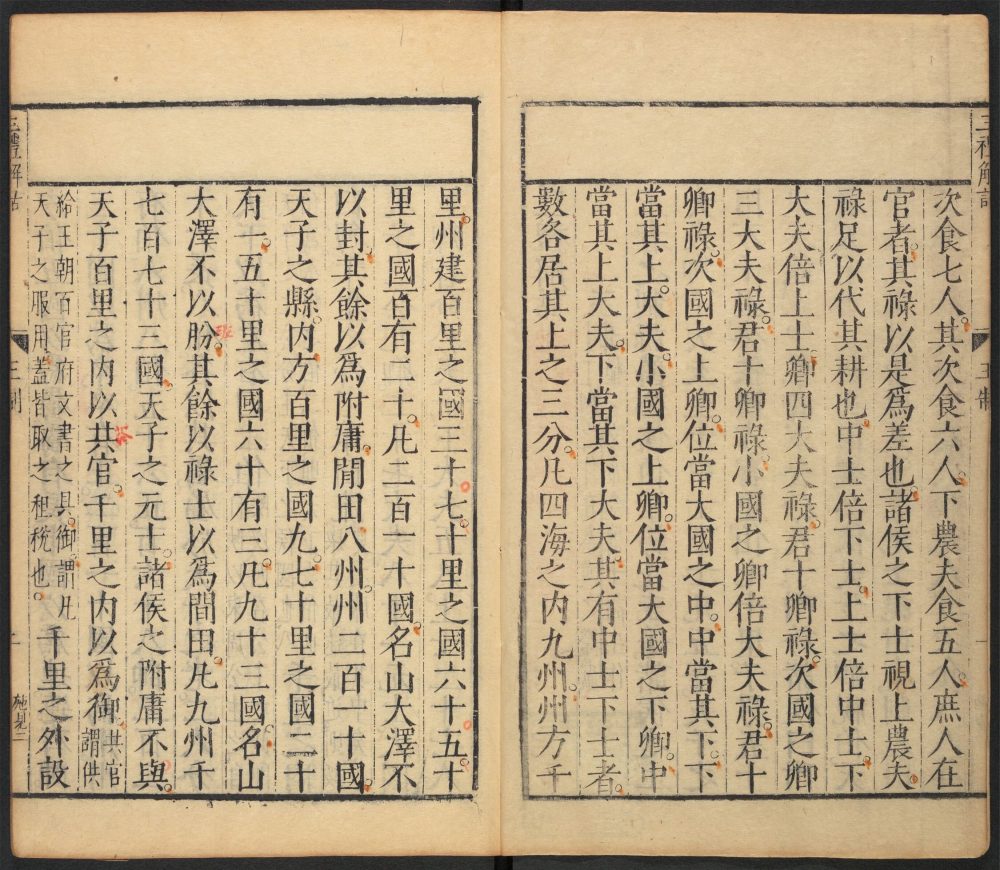 王制
次食七人其次食六人下農夫食五人庶人在
官者其祿以是爲差也諸侯之下士視上農夫
祿足以代其耕也中士倍下士上士倍中士下
大夫倍上士卿四大夫祿君十卿祿次國之卿
三大夫祿君十卿祿小國之卿倍大夫祿君十
卿祿次國之上卿位當大國之中中當其下下
當其上大夫小國之上卿位當大國之下卿中
當其上大夫下當其下大夫其有中士下士者
數各居其上之三分凡四海之内九州州方千
里州建百里之國三十七十里之國六十五十
里之國百有二十凡二百一十國名山大澤不
以封其餘以爲附庸閒田八州州二百一十國
天子之縣内方百里之國九七十里之國二十
有一五十里之國六十有三凡九十三國名山
大澤不以朌其餘以祿士以爲間田凡九州千
班
七百七十三國天子之元士諸侯之附庸不與
天子百里之内以共官千里之内以爲御共官謂供
給王朝百官府文書之具御謂凡
天子之服用蓋皆取之租稅也
千里之外設
三禮解詁
王制